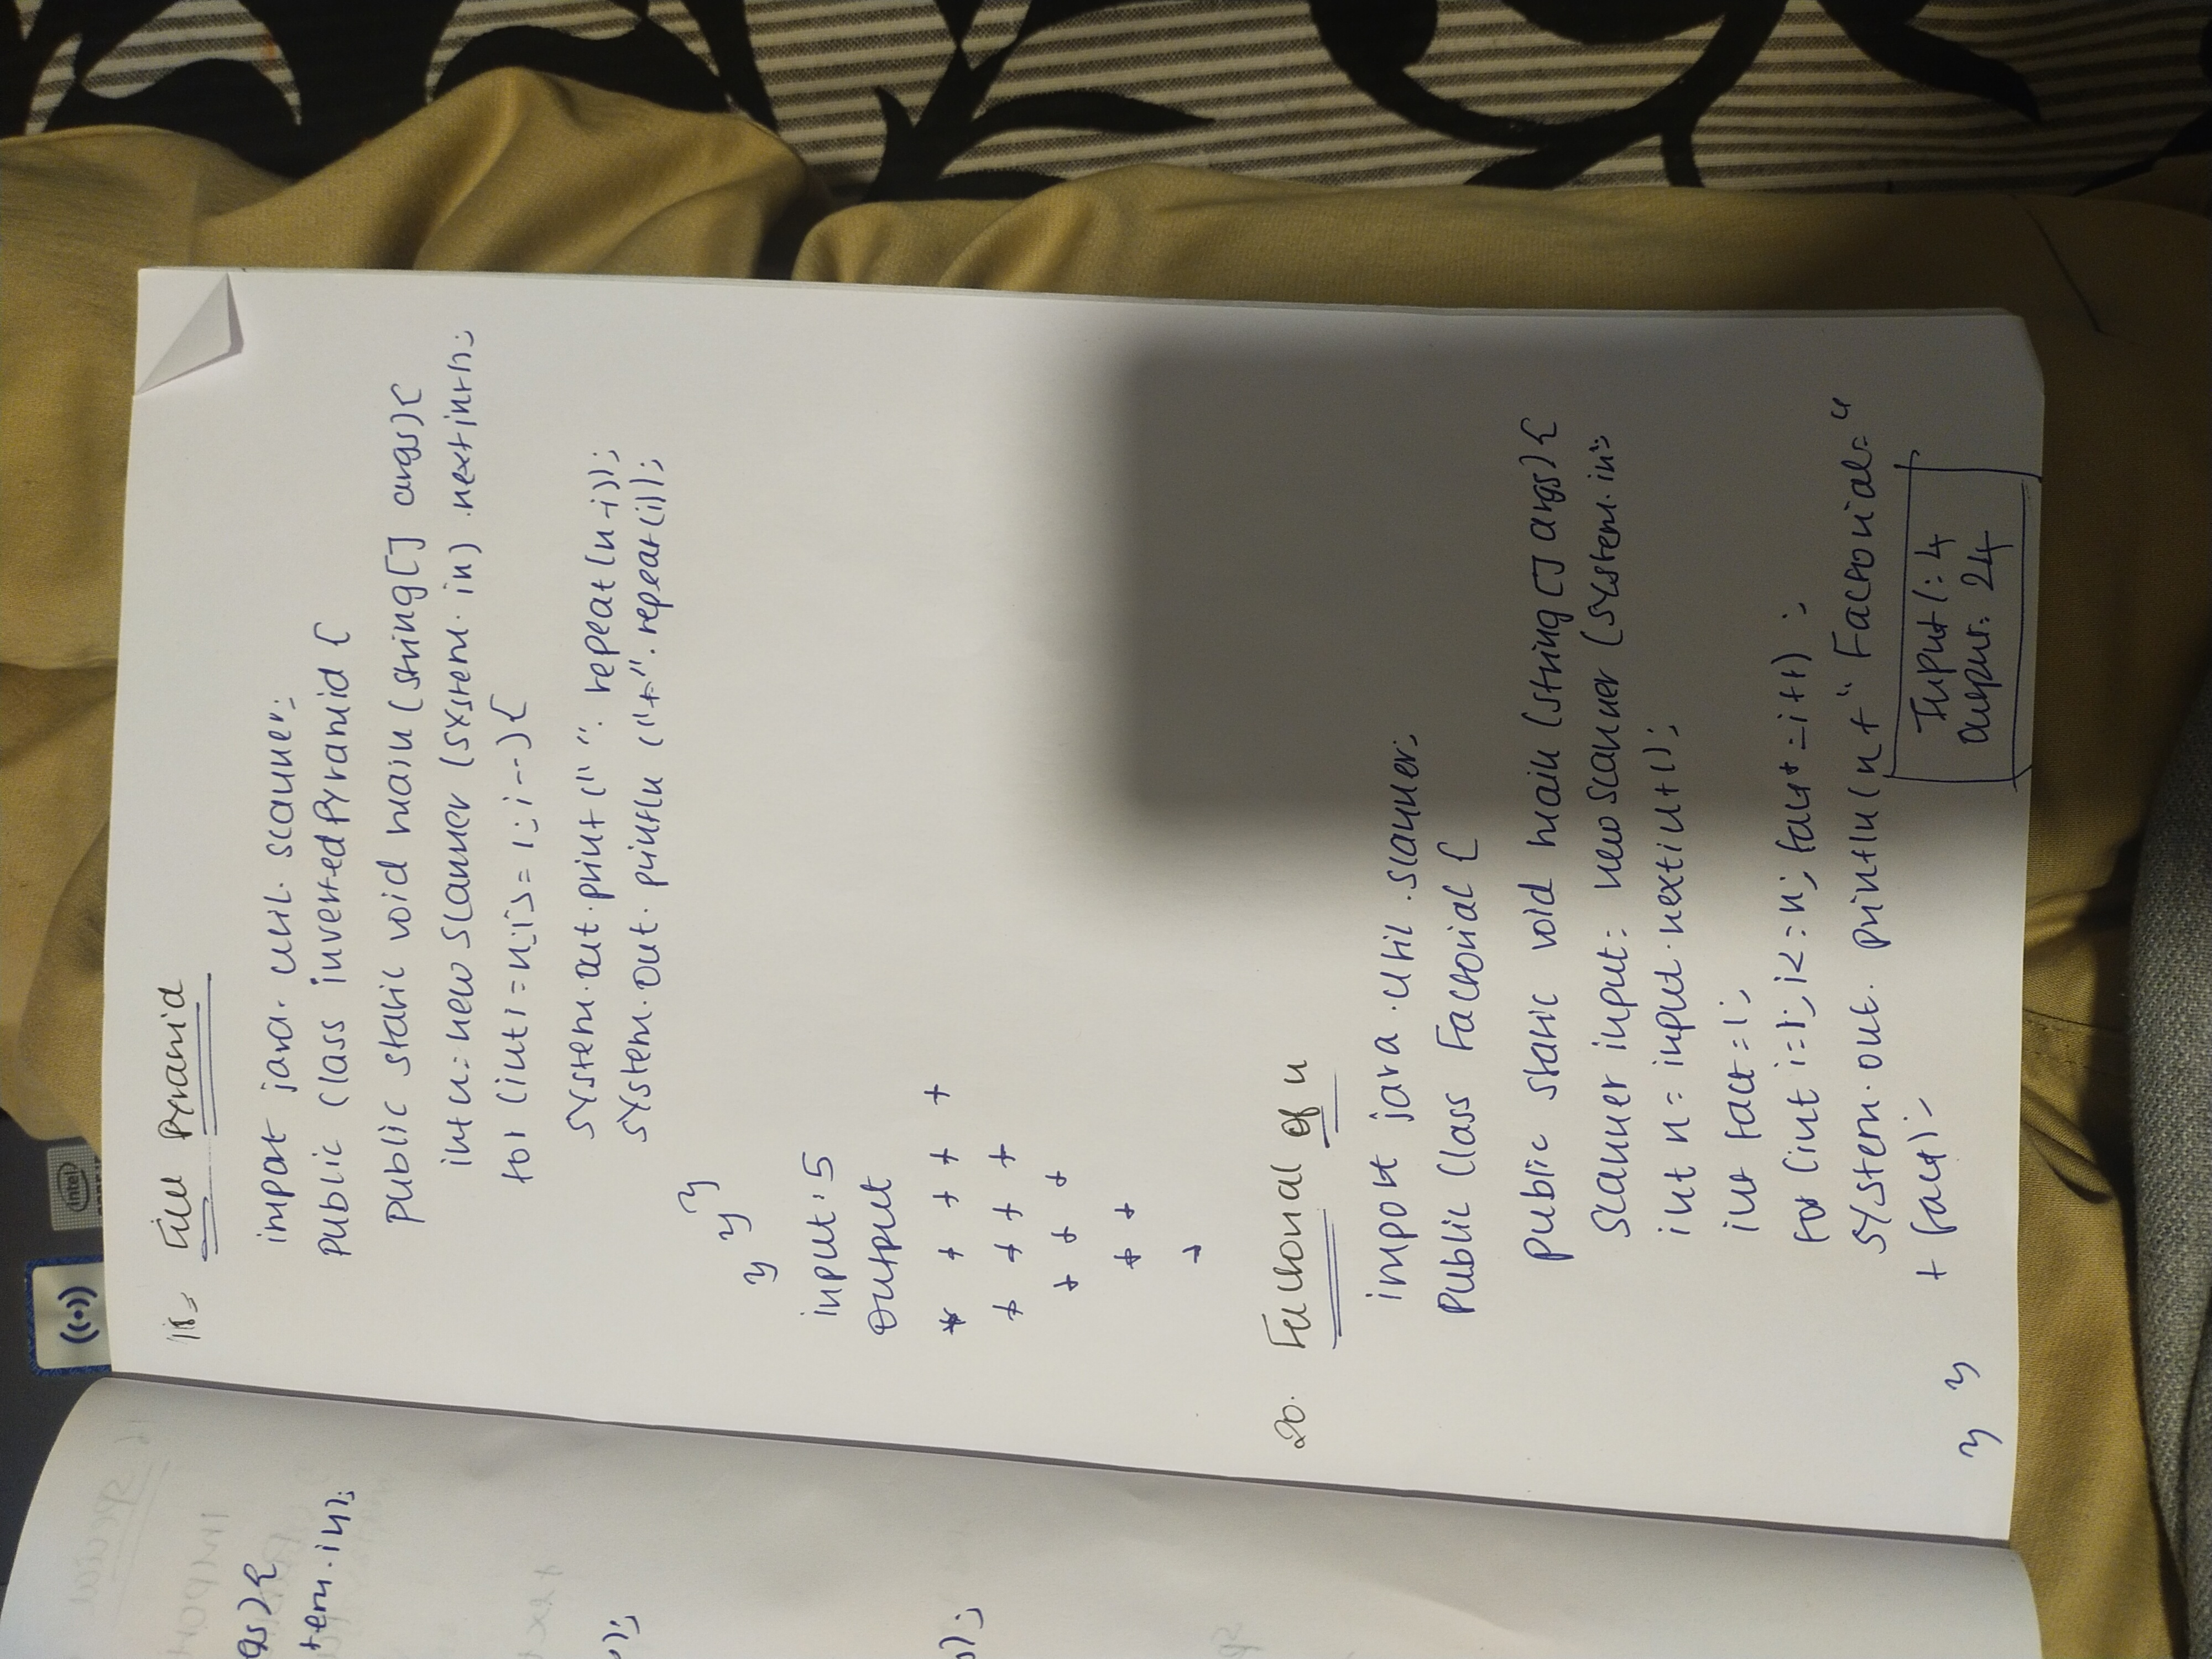 intel
gs){
tem.in);
);
);
18. Full Pyramid
import java.util.scanner;
public class invertedPyramid {
public static void main (string[] args){
int n = new Scanner (system.in).nextint();
for (int i = n; i >= 1; i--){
system.out.print(" ".repeat(n-i));
system.out.println("*".repeat(i));
}
}
}
input: 5
Output
* * * * *
* * * *
* * *
* *
*
20. Factorial of n
import java.util.scanner;
Public class Factorial {
public static void main (string[] args){
Scanner input = new Scanner (system.in);
int n = input.nextint();
int fact = 1;
for (int i=1; i<=n; fact*=i++) ;
system.out.println(n+" Factorial="
+ fact);
} }
Input1: 4
Output: 24